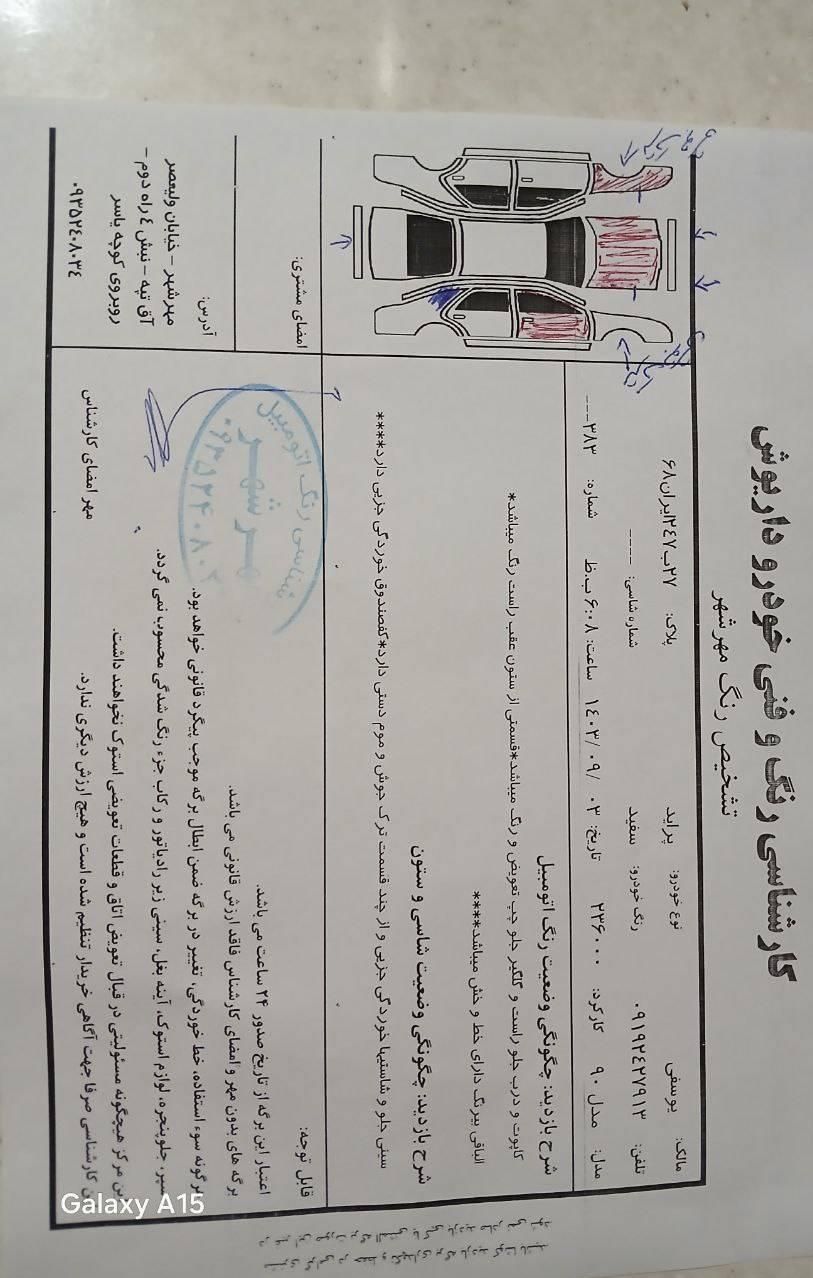 کارشناسی رنگ و فنی خودرو داریوش
تشخیص رنگ مهرشهر
مالک: یوسفی نوع خودرو: پراید پلاک: ۲۷ب۲۴۷ایران۶۸
تلفن: ۰۹۱۹۲۴۲۷۹۱۳ رنگ خودرو: سفید شماره شاسی: -----
مدل: مدل ۹۰ کارکرد: ۲۳۶۰۰۰ تاریخ: ۱۴۰۳/۰۹/۰۳ ساعت: ۶:۰۸ ب.ظ شماره: ۳۸۳---
شرح بازدید: چگونگی وضعیت رنگ اتومبیل
کاپوت و درب جلو راست و گلگیر جلو چپ تعویض و رنگ میباشد*قسمتی از ستون عقب راست رنگ میباشد*
الباقی بیرنگ دارای خط و خش میباشد****
شرح بازدید: چگونگی وضعیت شاسی و ستون
سینی جلو و شاستیها خوردگی جزیی و از چند قسمت ترک جوش و موم دستی دارد*کفصندوق خوردگی جزیی دارد****
امضای مشتری:
قابل توجه:
اعتبار این برگه از تاریخ صدور ۲۴ ساعت می باشد.
برگه های بدون مهر و امضای کارشناس فاقد ارزش قانونی می باشد.
هرگونه سوء استفاده، خط خوردگی، تغییر در برگه ضمن ابطال برگه موجب پیگرد قانونی خواهد بود.
سپر، جلوپنجره، لوازم استوک، آینه بغل، سینی زیر رادیاتور و رکاب جزء رنگ شدگی محسوب نمی گردد.
این مرکز هیچگونه مسئولیتی در قبال تعویض اتاق و قطعات تعویضی استوک نخواهند داشت.
این کارشناسی صرفا جهت آگاهی خریدار تنظیم شده است و هیچ ارزش دیگری ندارد.
مهر امضای کارشناس
شناسی رنگ اتومبیل
مهرشهر
آدرس:
مهرشهر - خیابان ولیعصر
آق تپه - نبش ٤ راه دوم -
روبروی کوچه یاسر
۰۹۳۵۲٤۰۸۰۳٤
Galaxy A15